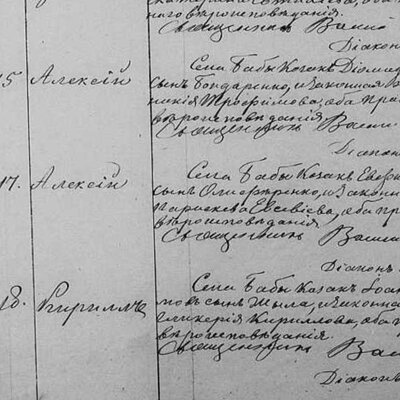 наго вѣроисповѣданія.
Священникъ Васи
Діаконъ
15 Алексій Села Бабы Козакъ Діомид
сынъ Бондаренко, и законная
Трофимова, оба пра
вѣроисповѣданія
Священникъ Васи
Діаконъ
17. Алексій Села Бабы Козакъ
сынъ и законн
Евсевіева, оба пр
вѣроисповѣданія
Священникъ Васи
Діаконъ
18. Кириллъ Села Бабы Козакъ Іоан
сынъ Шыла, и законна
Гликерія Кириллова, оба
вѣроисповѣданія.
Священникъ Ва
Діаконъ